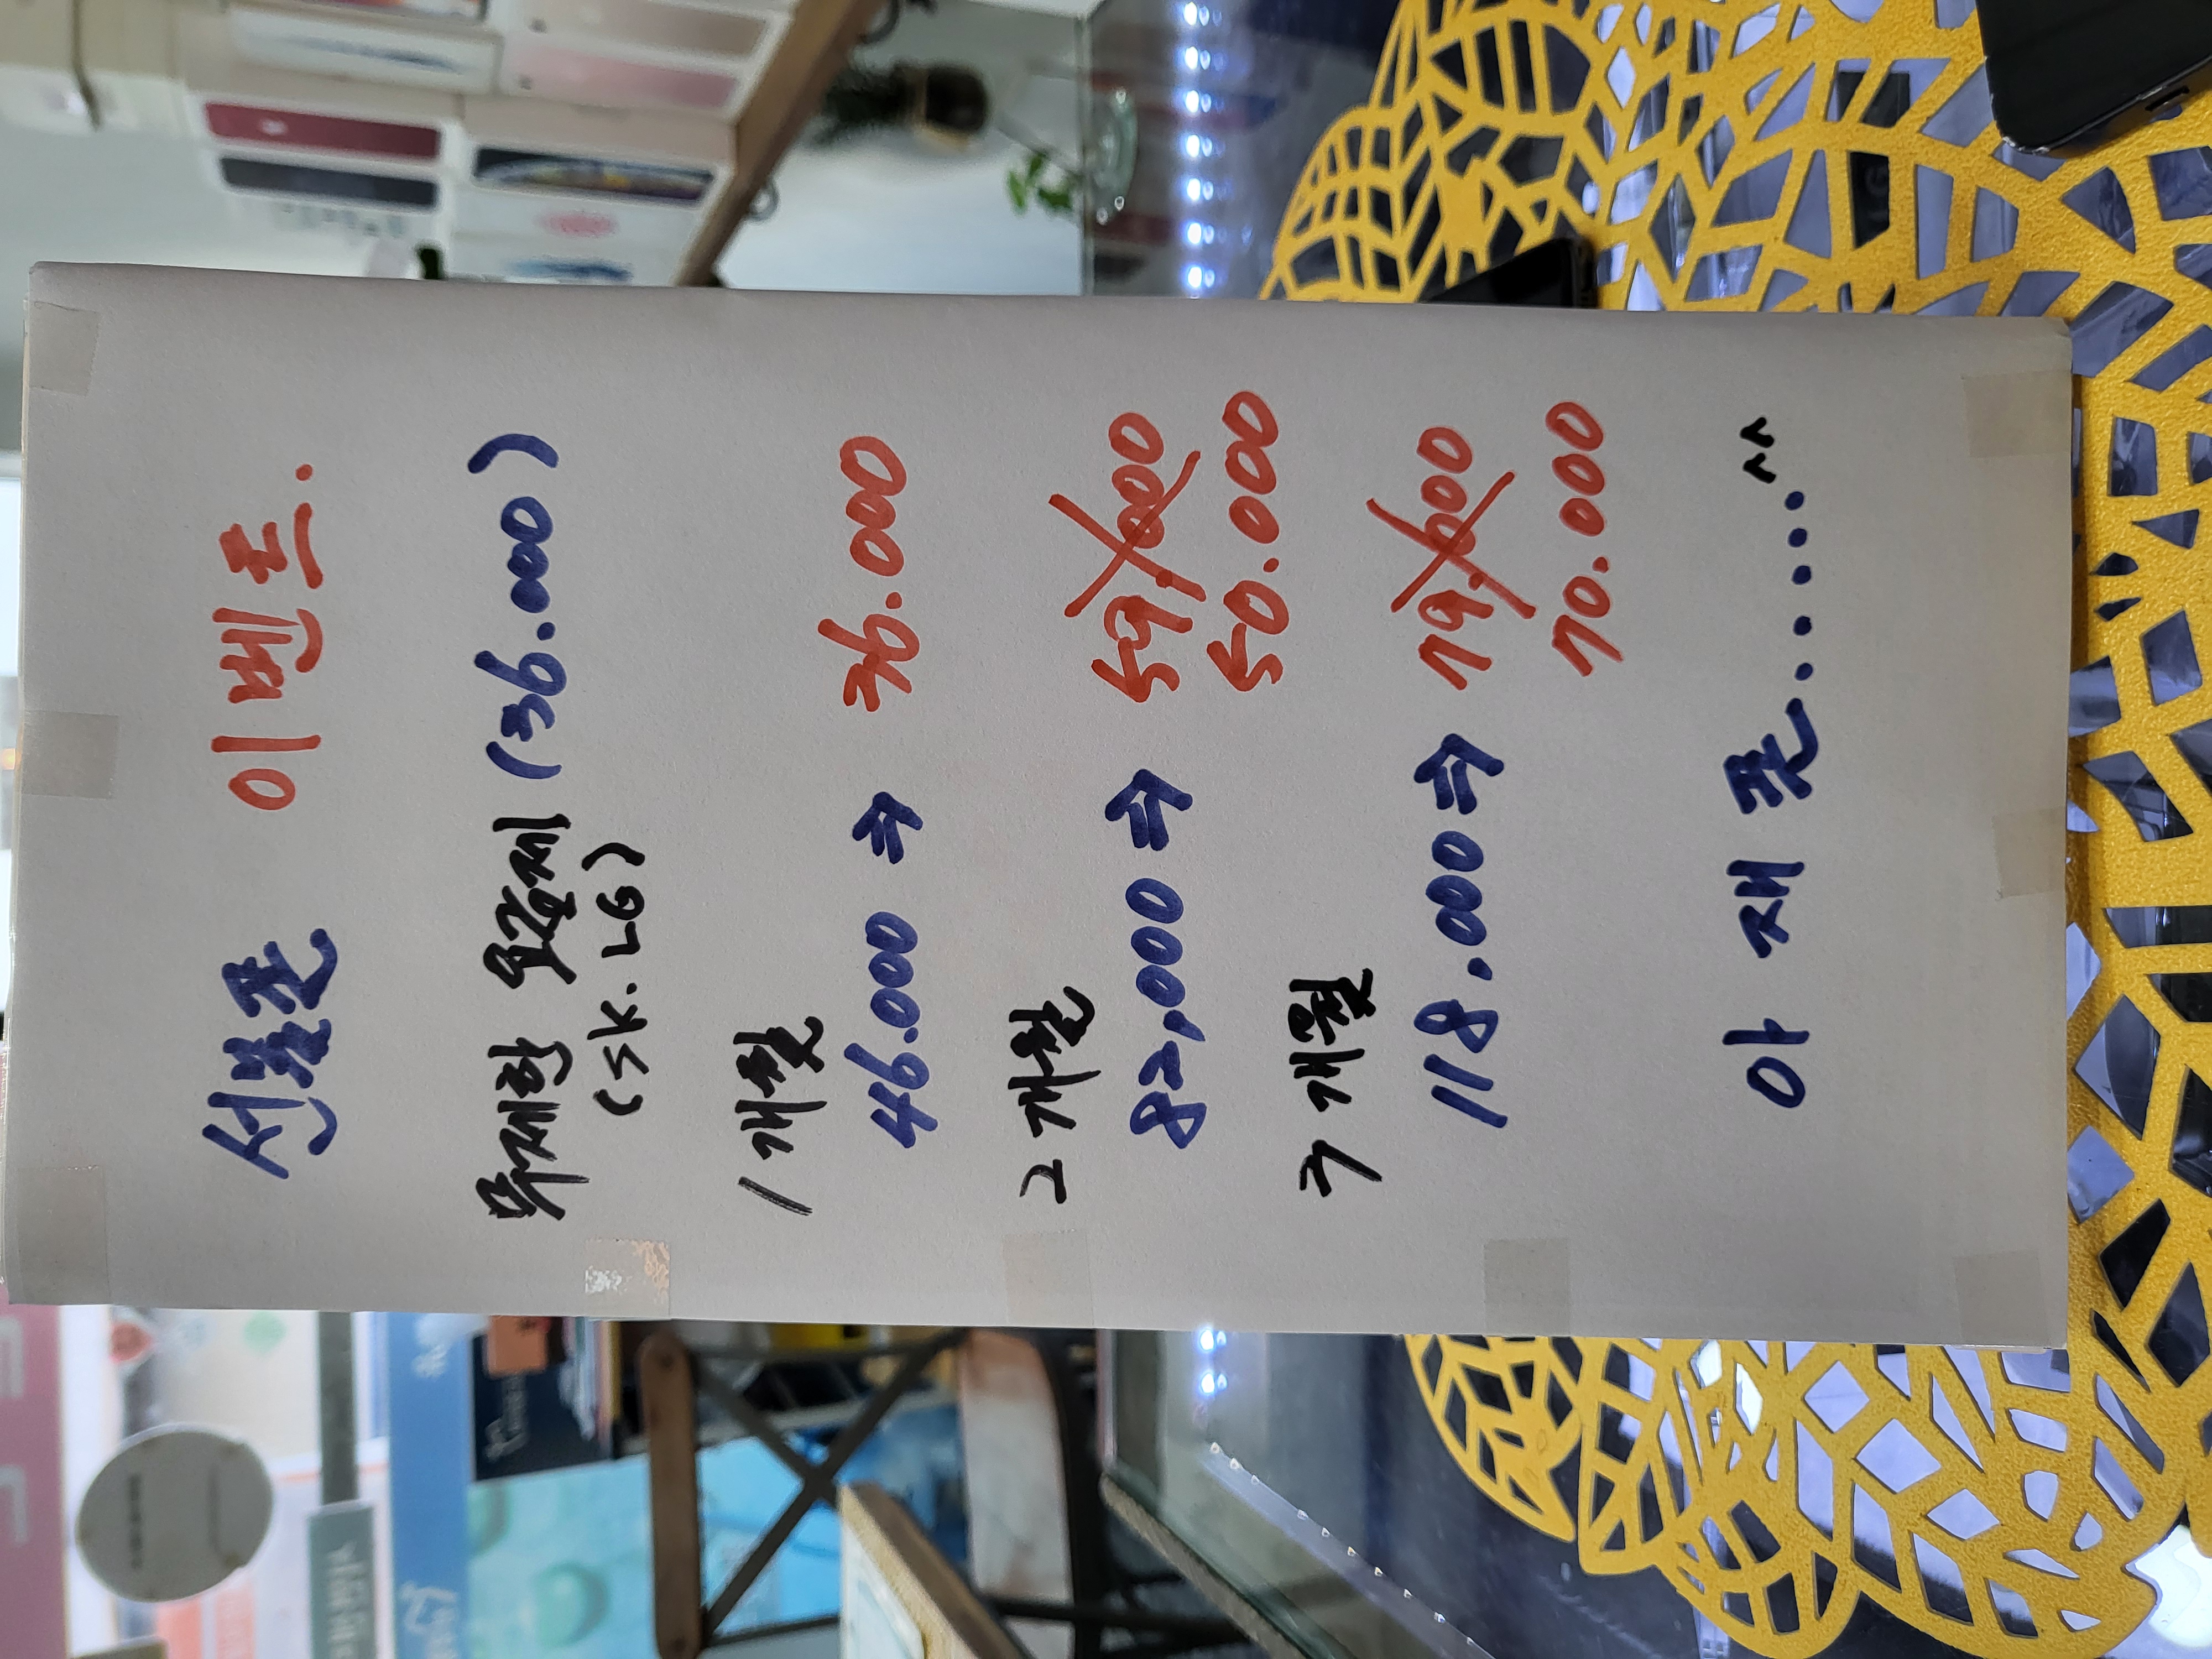 선불폰 이벤트.
무제한 요금제 (36.000)
(SK. LG)
1개월
46.000 ⇒ 36.000
2개월
82,000 ⇒ 59.000
50.000
3개월
118.000 ⇒ 79.600
70.000
아재폰..... ^^